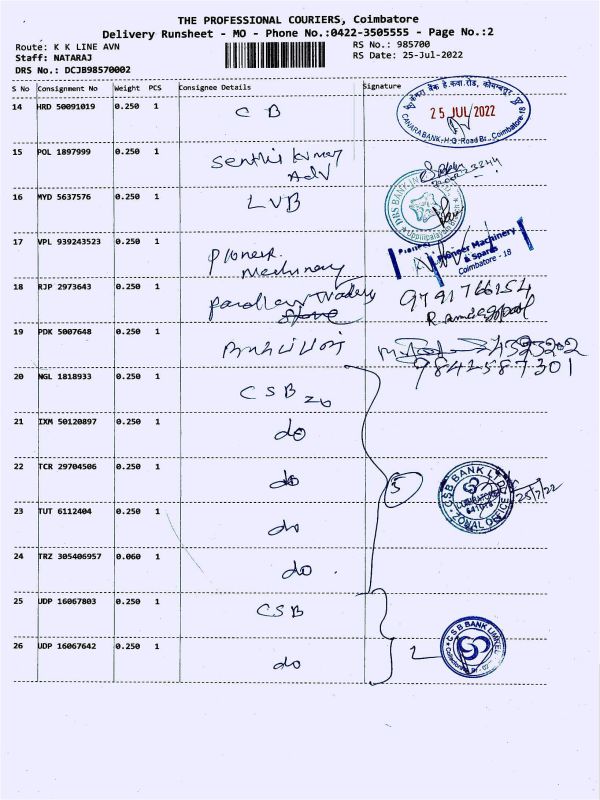 THE PROFESSIONAL COURIERS, Coimbatore
Delivery Runsheet - MO - Phone No.:0422-3505555 - Page No.:2
Route: K K LINE AVN RS No.: 985700
Staff: NATARAJ RS Date: 25-Jul-2022
DRS No.: DCJB98570002
S No Consignment No Weight PCS Consignee Details Signature
14 HRD 50091019 0.250 1 C B
25 JUL 2022
CANARA BANK, H.O. Road Br., Coimbatore-18
15 POL 1897999 0.250 1 Senthil Kumar
Adv
16 MYD 5637576 0.250 1 LVB
DBS BANK
17 VPL 939243523 0.250 1 Pioneer
Machinery
Pioneer Machinery
& Spares
Coimbatore - 18
18 RJP 2973643 0.250 1 Traders
9791766154
19 PDK 5007648 0.250 1
9842587301
20 NGL 1818933 0.250 1 CSB ZO
21 IXM 50120897 0.250 1 do
22 TCR 29704506 0.250 1 do 5
CSB BANK LTD
COIMBATORE
641018
ZONAL OFFICE
25/7/22
23 TUT 6112404 0.250 1 do
24 TRZ 305406957 0.060 1 do
25 UDP 16067803 0.250 1 CSB
26 UDP 16067642 0.250 1 do 2
CSB BANK LIMITED